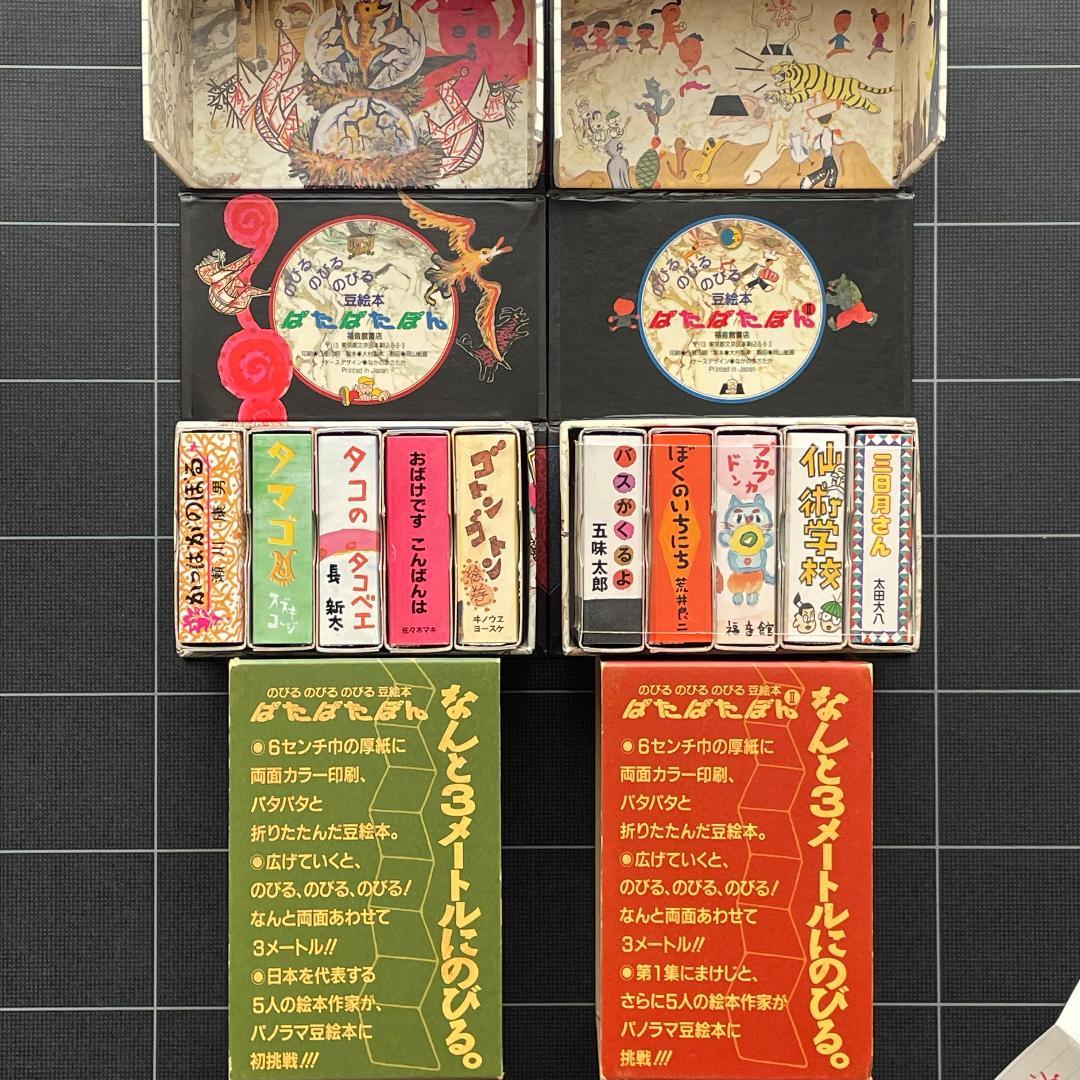 のびる
のびる
のびる
豆絵本
ぱたぱたぽん
福音館書店
〒113 東京都文京区本駒込6-6-3
ケースデザイン●なかのまさたか
Printed in Japan
のびる
のびる
のびる
豆絵本
ぱたぱたぽん II
福音館書店
〒113 東京都文京区本駒込6-6-3
ケースデザイン●なかのまさたか
Printed in Japan
かっぱかぞのぼる
瀬川康男
タマゴ
スズキコージ
タコのタコベエ
長新太
おばけです こんばんは
佐々木マキ
ゴトンゴトン
絵巻
ヰノウヱヨースケ
バスがくるよ
五味太郎
ぼくのいちにち
荒井良二
プカプカドン
福音館
仙術学校
三日月さん
太田大八
のびる のびる のびる 豆絵本
ぱたぱたぽん
なんと3メートルにのびる。
◉6センチ巾の厚紙に
両面カラー印刷、
パタパタと
折りたたんだ豆絵本。
◉広げていくと、
のびる、のびる、のびる!
なんと両面あわせて
3メートル!!
◉日本を代表する
5人の絵本作家が、
パノラマ豆絵本に
初挑戦!!!
のびる のびる のびる 豆絵本
ぱたぱたぽん II
なんと3メートルにのびる。
◉6センチ巾の厚紙に
両面カラー印刷、
パタパタと
折りたたんだ豆絵本。
◉広げていくと、
のびる、のびる、のびる!
なんと両面あわせて
3メートル!!
◉第1集にまけじと、
さらに5人の絵本作家が
パノラマ豆絵本に
挑戦!!!